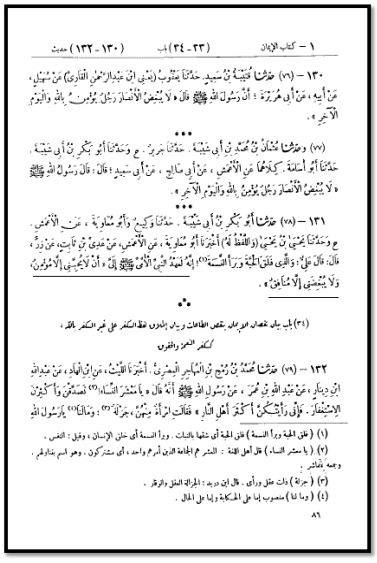 ١ - كتاب الإيمان (٣٣-٣٤) باب (١٣٠-١٣٢) حديث
١٣٠ - (٧٦) حدثنا قُتَيْبَةُ بْنُ سَعِيدٍ. حَدَّثَنَا يَعْقُوبُ (يَعْنِي ابْنَ عَبْدِالرَّحْمٰنِ الْقَارِيَّ) عَنْ سُهَيْلٍ،
عَنْ أَبِيهِ، عَنْ أَبِي هُرَيْرَةَ؛ أَنَّ رَسُولَ اللهِ ﷺ قَالَ « لَا يُبْغِضُ الْأَنْصَارَ رَجُلٌ يُؤْمِنُ بِاللهِ وَالْيَوْمِ
الْآخِرِ ».
***
(٧٧) وحدثنا عُثْمَانُ بْنُ مُحَمَّدِ بْنِ أَبِي شَيْبَةَ. حَدَّثَنَا جَرِيرٌ. ح وَحَدَّثَنَا أَبُو بَكْرِ بْنُ أَبِي شَيْبَةَ.
حَدَّثَنَا أَبُو أُسَامَةَ. كِلَاهُمَا عَنِ الْأَعْمَشِ، عَنْ أَبِي صَالِحٍ، عَنْ أَبِي سَعِيدٍ؛ قَالَ: قَالَ رَسُولُ اللهِ ﷺ
« لَا يُبْغِضُ الْأَنْصَارَ رَجُلٌ يُؤْمِنُ بِاللهِ وَالْيَوْمِ الْآخِرِ ».
***
١٣١ - (٧٨) حدثنا أَبُو بَكْرِ بْنُ أَبِي شَيْبَةَ. حَدَّثَنَا وَكِيعٌ وَأَبُو مُعَاوِيَةَ، عَنِ الْأَعْمَشِ.
ح وَحَدَّثَنَا يَحْيَىٰ بْنُ يَحْيَىٰ (وَاللَّفْظُ لَهُ) أَخْبَرَنَا أَبُو مُعَاوِيَةَ، عَنِ الْأَعْمَشِ، عَنْ عَدِيِّ بْنِ ثَابِتٍ، عَنْ زِرٍّ،
قَالَ: قَالَ عَلِيٌّ: وَالَّذِي فَلَقَ الْحَبَّةَ وَبَرَأَ النَّسَمَةَ(١)! إِنَّهُ لَعَهْدُ النَّبِيِّ الْأُمِّيِّ ﷺ إِلَيَّ « أَنْ لَا يُحِبَّنِي إِلَّا مُؤْمِنٌ،
وَلَا يُبْغِضَنِي إِلَّا مُنَافِقٌ ».
(٣٤) باب بيان نقصان الإيمان بنقص الطاعات وبيان إطلاق لفظ الكفر على غير الكفر بالله،
ككفر النعمة والحقوق
١٣٢ - (٧٩) حدثنا مُحَمَّدُ بْنُ رُمْحِ بْنِ الْمُهَاجِرِ الْمِصْرِيُّ. أَخْبَرَنَا اللَّيْثُ، عَنِ ابْنِ الْهَادِ، عَنْ عَبْدِاللهِ
ابْنِ دِينَارٍ، عَنْ عَبْدِ اللهِ بْنِ عُمَرَ، عَنْ رَسُولِ اللهِ ﷺ أَنَّهُ قَالَ « يَا مَعْشَرَ النِّسَاءِ(٢)! تَصَدَّقْنَ وَأَكْثِرْنَ
الِاسْتِغْفَارَ. فَإِنِّي رَأَيْتُكُنَّ أَكْثَرَ أَهْلِ النَّارِ » فَقَالَتِ امْرَأَةٌ مِنْهُنَّ، جَزْلَةٌ(٣): وَمَا لَنَا(٤) يَا رَسُولَ اللهِ
(١) (فلق الحبة وبرأ النسمة) فلق الحبة أي شقها بالنبات. وبرأ النسمة أي خلق الإنسان، وقيل: النفس.
(٢) (يا معشر النساء) قال أهل اللغة: المعشر هم الجماعة الذين أمرهم واحد، أي مشتركون. وهو اسم يتناولهم.
وجمعه معاشر.
(٣) (جزلة) ذات عقل ورأي. قال ابن دريد: الجزالة العقل والوقار.
(٤) (وما لنا) منصوب إما على الحكاية وإما على الحال.
٨٦